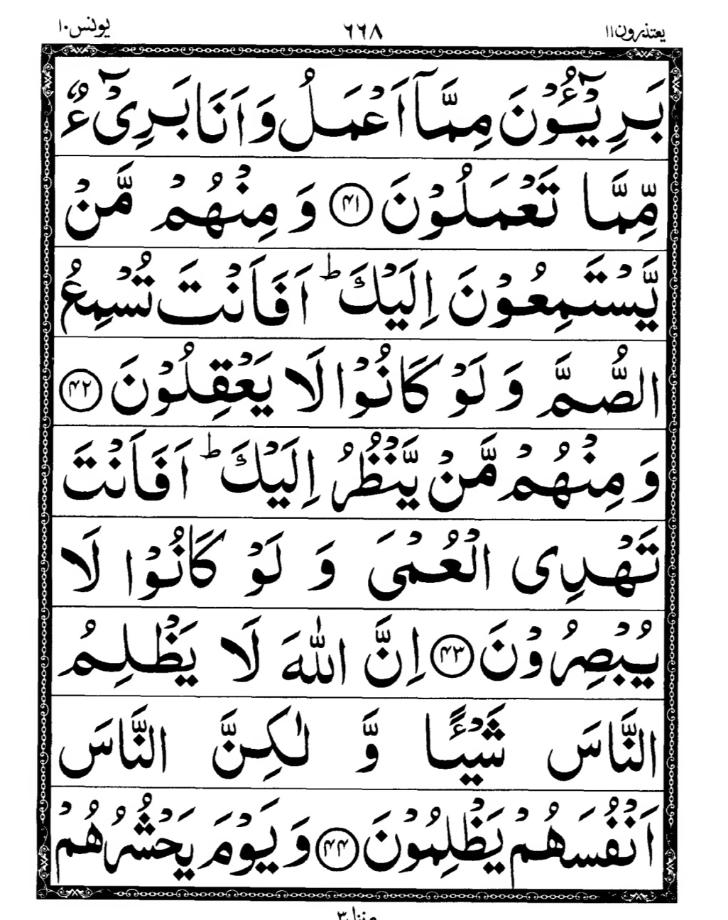 یعتذرون۱۱ ۶۶۸ یونس۱۰
بَرِیْٓـُٔوْنَ مِمَّاۤ اَعْمَلُ وَ اَنَا بَرِیْٓءٌ
مِّمَّا تَعْمَلُوْنَ ﴿۴۱﴾ وَ مِنْهُمْ مَّنْ
یَّسْتَمِعُوْنَ اِلَیْكَ ؕ اَفَاَنْتَ تُسْمِعُ
الصُّمَّ وَ لَوْ كَانُوْا لَا یَعْقِلُوْنَ ﴿۴۲﴾
وَ مِنْهُمْ مَّنْ یَّنْظُرُ اِلَیْكَ ؕ اَفَاَنْتَ
تَهْدِی الْعُمْیَ وَ لَوْ كَانُوْا لَا
یُبْصِرُوْنَ ﴿۴۳﴾ اِنَّ اللّٰهَ لَا یَظْلِمُ
النَّاسَ شَیْـًٔا وَّ لٰكِنَّ النَّاسَ
اَنْفُسَهُمْ یَظْلِمُوْنَ ﴿۴۴﴾ وَ یَوْمَ یَحْشُرُهُمْ
منزل۳